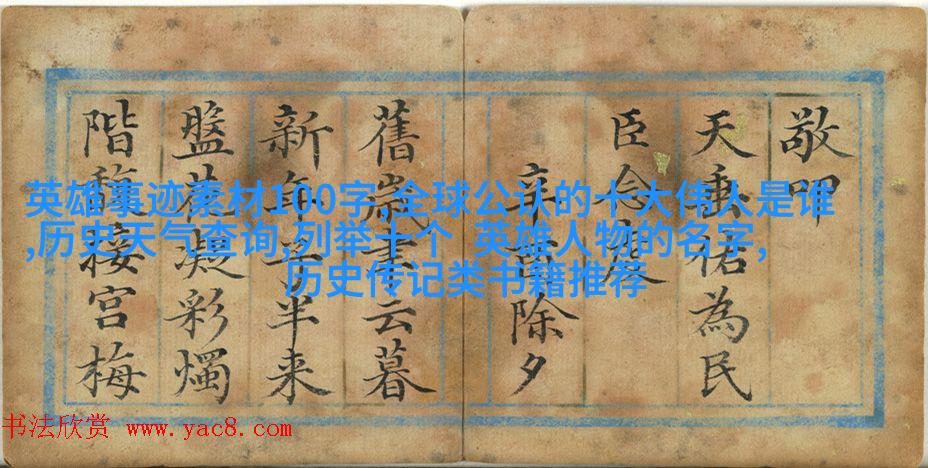 敬叩
天垂祐為民
臣念
辛除夕
舊歲云暮
新年半来
盤花凝彩燭
階馥接宮梅
英雄事迹素材100字,全球公认的十大伟人是谁
,历史天气查询,列举十个 英雄人物的名字,
历史传记类书籍推荐
书法欣赏 www.yac8.com